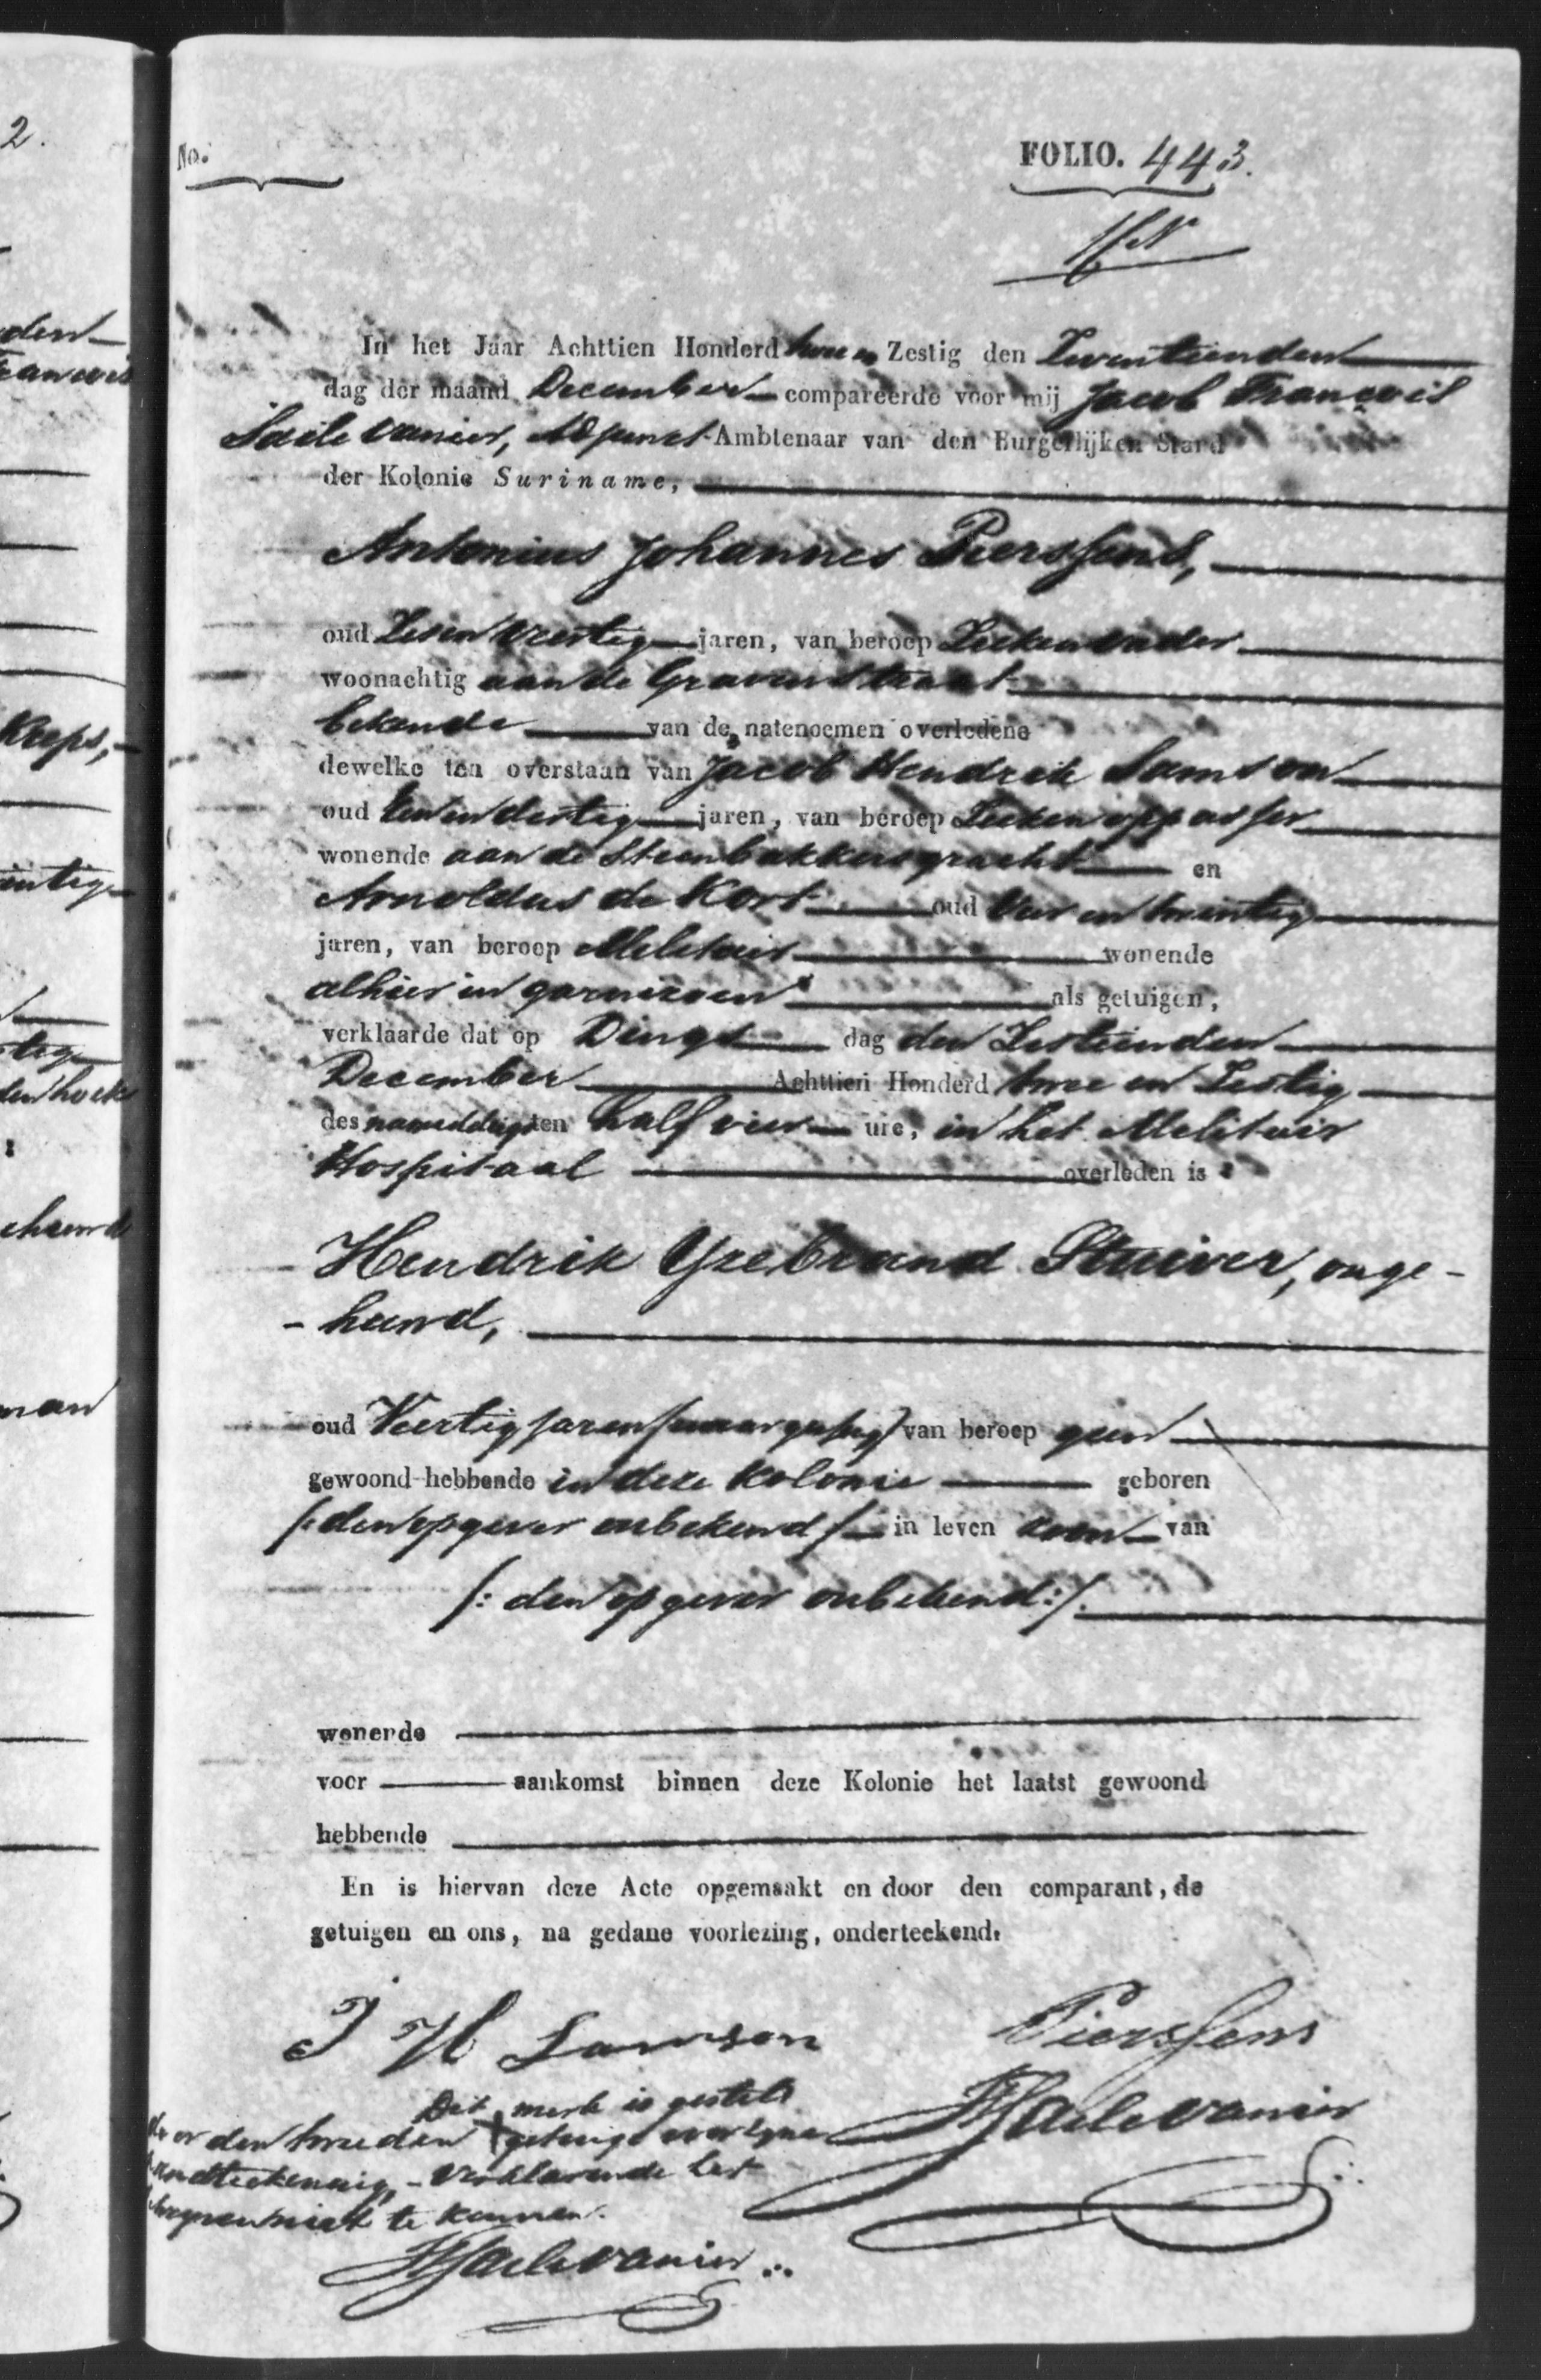 2.
No.
FOLIO. 443.
In het Jaar Achttien Honderd twee en Zestig den Zeventienden
dag der maand December compareerde voor mij Jacob François
Saile Vanier, Adjunct Ambtenaar van den Burgerlijken Stand
der Kolonie Suriname,
Antonius Johannes Pierssens,
oud Zesen Veertig jaren, van beroep Ziekenvader
woonachtig aan de Gravenstraat
bekende van de natenoemen overledene
dewelke ten overstaan van Jacob Hendrik Samson
oud een en dertig jaren, van beroep Ziekenoppasser
wonende aan de Steenbakkersgracht en
Arnoldus de Kort oud Vier en twintig
jaren, van beroep Militair wonende
alhier in garnizoen als getuigen,
verklaarde dat op Dings dag den Zestienden
December Achttien Honderd twee en Zestig
des namiddags ten half vier ure, in het Militair
Hospitaal overleden is
Hendrik Yzebrand Stuiver, onge-
- huwd,
oud Veertig jaren van beroep geen
gewoond hebbende in deze Kolonie geboren
/: den opgever onbekend :/ in leven zoon van
/: den opgever onbekend :/.
wonende
voor aankomst binnen deze Kolonie het laatst gewoond
hebbende
En is hiervan deze Acte opgemaakt en door den comparant, de
getuigen en ons, na gedane voorlezing, onderteekend.
J H Samson Pierssens
Dit merk is gesteld
door den tweeden getuige voor zyne
handteekening, - Verklarende het
schryven niet te kennen.